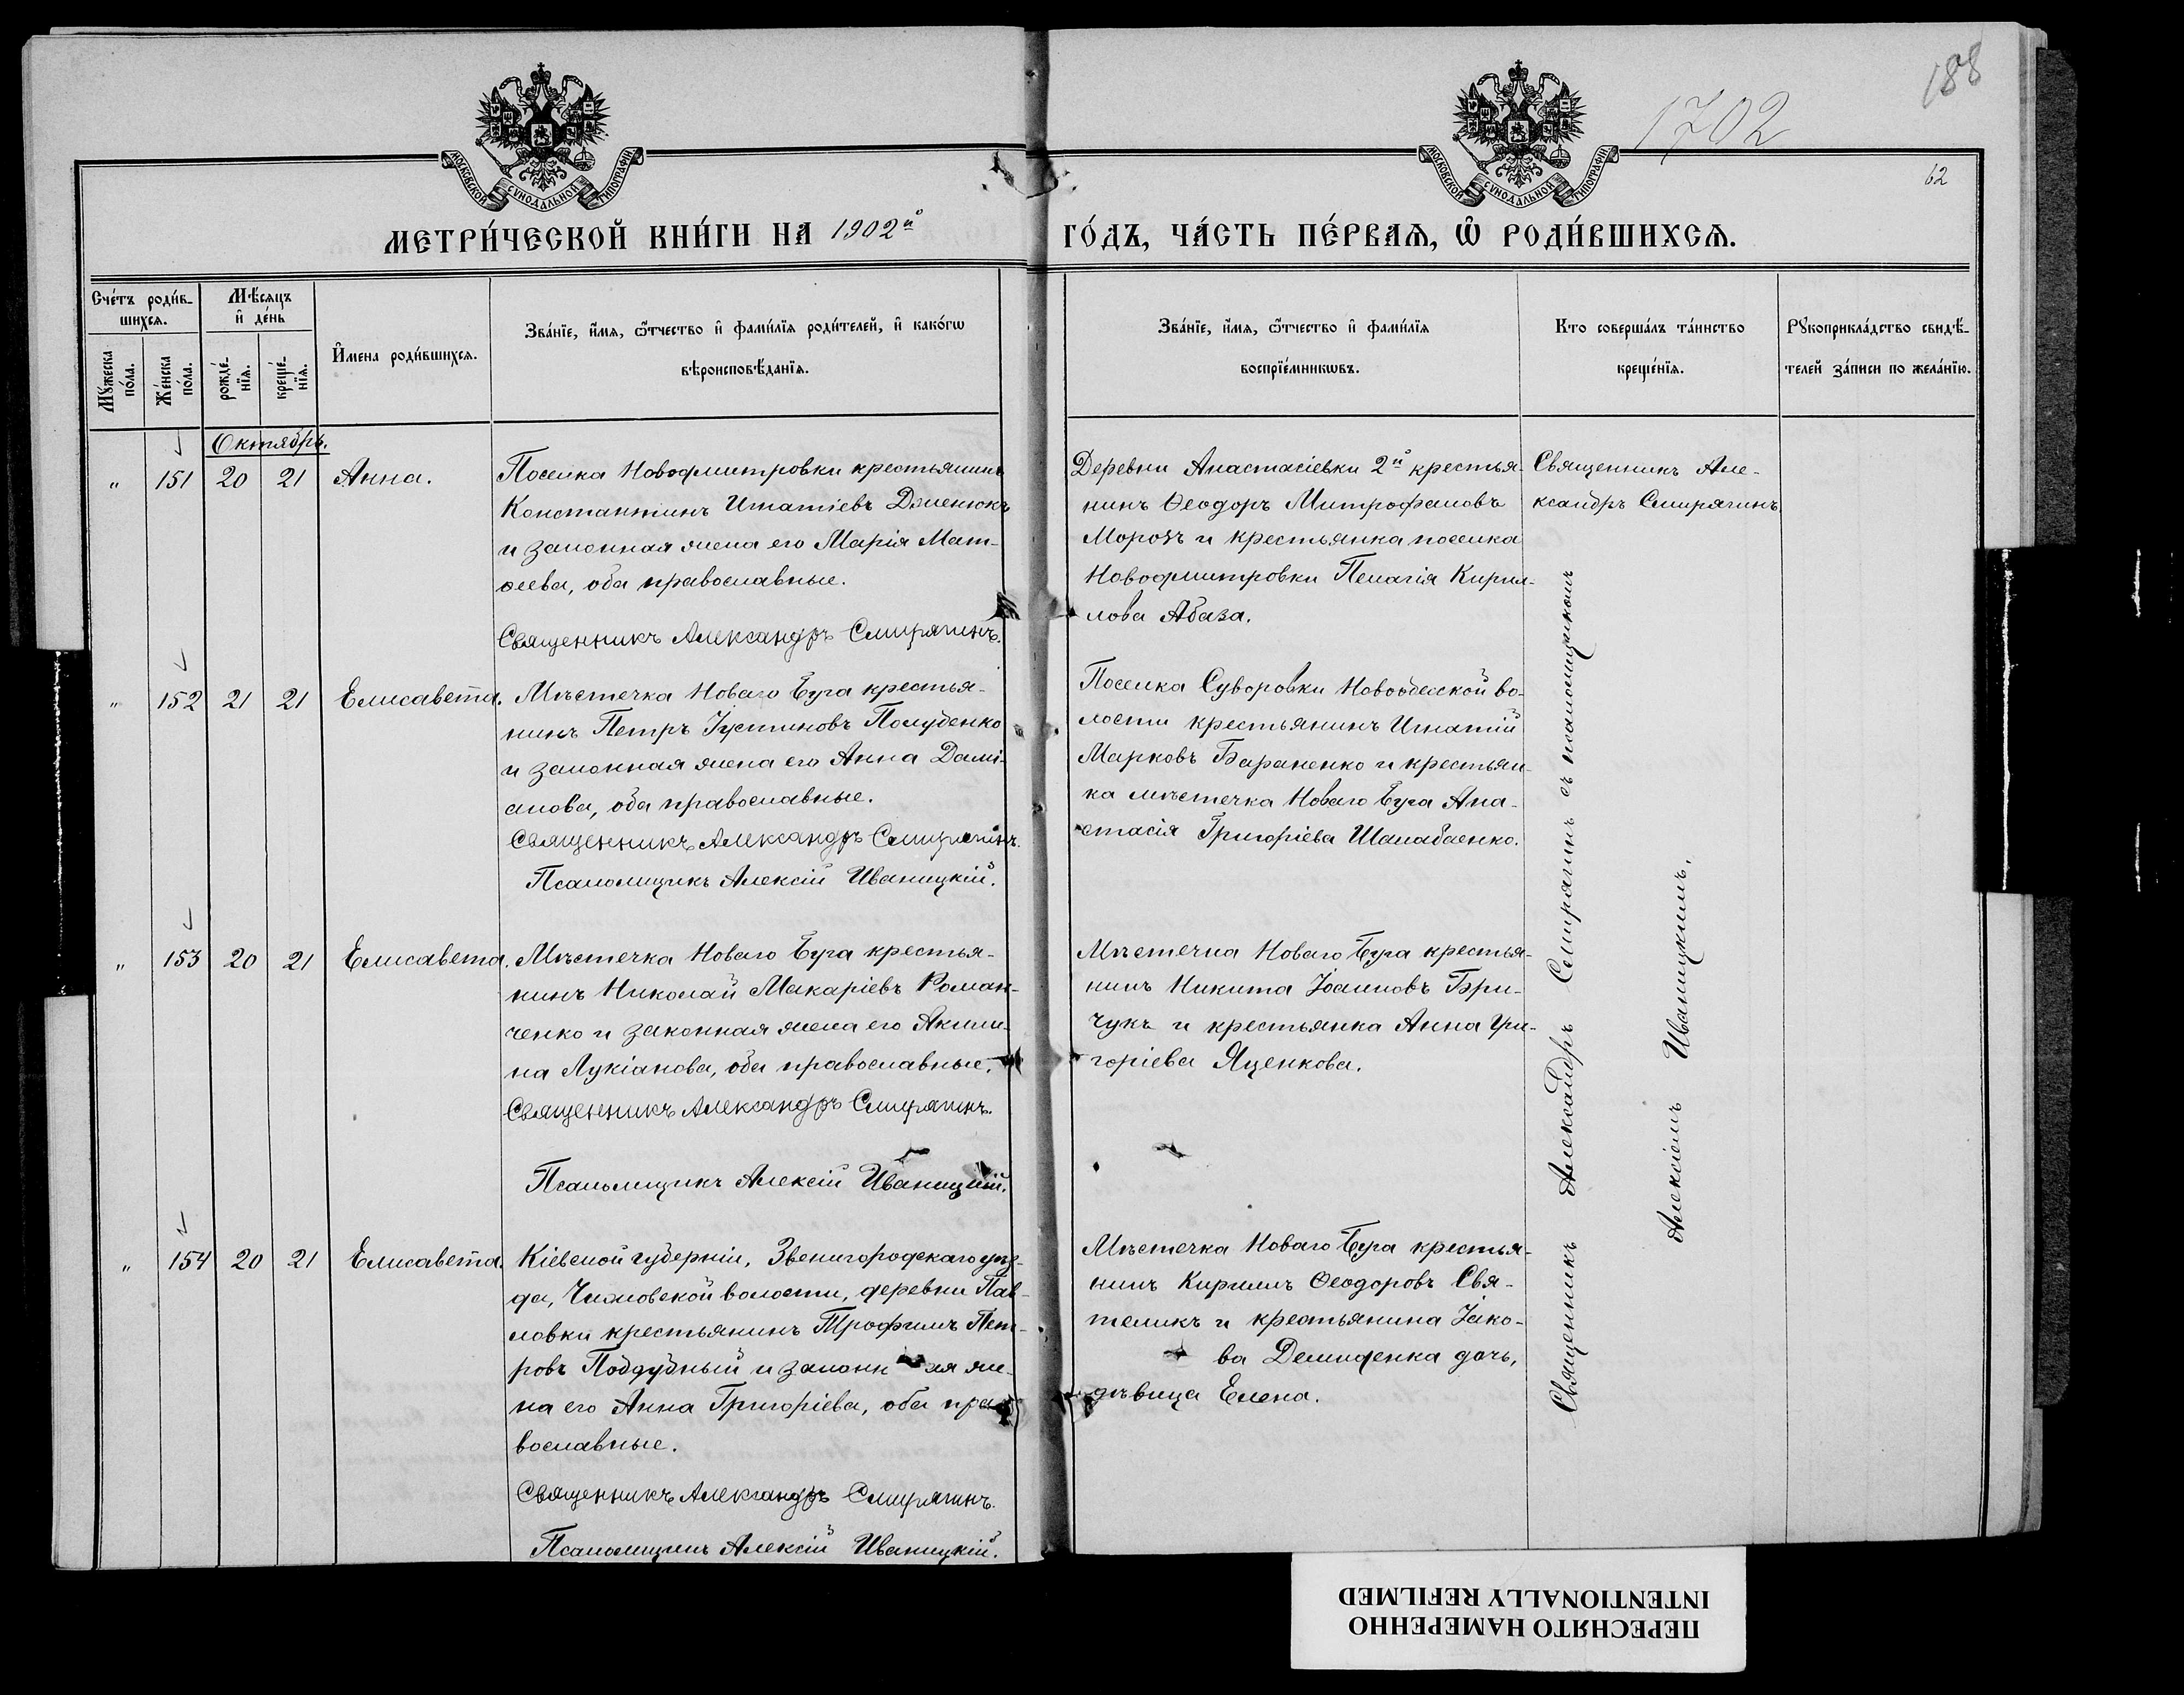 188
1702
62
МОСКОВСКОЙ СѴНОДАЛЬНОЙ ТИПОГРАФІИ
МОСКОВСКОЙ СѴНОДАЛЬНОЙ ТИПОГРАФІИ
МЕТРИ́ЧЕСКОЙ КНИ́ГИ НА 1902й
ГО́ДЪ, ЧА́СТЬ ПЕ́РВАѦ, Ѡ҆ РОДИ́ВШИХСѦ.
Сче́тъ роди́в-
шихсѧ.
Мꙋ́жеска
по́ла.
Же́нска
по́ла.
Мѣ́сѧцъ
и҆ де́нь
рожде́-
нїѧ.
креще́-
нїѧ.
И҆мена роди́вшихсѧ.
Зва́нїе, и҆́мѧ, ѻ҆́тчество и҆ фами́лїѧ роди́телей, и҆ како́гѡ
вѣроисповѣ́данїѧ.
Зва́нїе, и҆́мѧ, ѻ҆́тчество и҆ фами́лїѧ
воспрїе́мникѡвъ.
Кто соверша́лъ та́инство
креще́нїѧ.
Рꙋкоприкла́дство свидѣ́-
телей за́писи по жела́нїю.
Октябрь.
„ 151 20 21 Анна.
Поселка Новодмитровки крестьянинъ
Константинъ Игнатіевъ
и законная жена его Марія Мат-
ѳеева, оба православные.
Священникъ Александръ Смирягинъ.
Деревни Анастасіевки 2й крестья-
нинъ Ѳеодоръ Митрофановъ
Морозъ и крестьянка поселка
Новодмитровки Пелагія Кирил-
лова Абаза.
Священникъ Але-
ксандръ Смирягинъ
„ 152 21 21 Елисавета.
Мѣстечка Новаго Буга крестья-
нинъ Петръ Іустиновъ Полубенко
и законная жена его Анна Дамі-
анова, оба православные.
Священникъ Александръ Смирягинъ.
Псаломщикъ Алексій Иваницкій.
Поселка Суворовки Новоодесской во-
лости крестьянинъ Игнатій
Марковъ Бараненко и крестьян-
ка мѣстечка Новаго Буга Ана-
стасія Григоріева Шалабаенко.
„ 153 20 21 Елисавета.
Мѣстечка Новаго Буга крестья-
нинъ Николай Макаріевъ Роман-
ченко и законная жена его Акили-
на Лукіанова, оба православные.
Священникъ Александръ Смирягинъ.
Псаломщикъ Алексій Иваницкій.
Мѣстечка Новаго Буга крестья-
нинъ Никита Іоанновъ Гри-
чукъ и крестьянка Анна Гри-
горіева Яценкова.
„ 154 20 21 Елисавета.
Кіевской губерніи, Звенигородскаго уѣз-
да, Чижовской волости, деревни Пав-
ловки крестьянинъ Трофимъ Пет-
ровъ Поддубный и законн ая же-
на его Анна Григоріева, оба пра-
вославные.
Священникъ Александръ Смирягинъ.
Псаломщикъ Алексій Иваницкій.
Мѣстечка Новаго Буга крестья-
нинъ Кириллъ Ѳеодоровъ Свя-
теликъ и крестьянина Іако-
ва Демиденка дочь,
дѣвица Елена.
Священникъ Александръ Смирягинъ съ псаломщикомъ
Алексіемъ Иваницкимъ.
ПЕРЕСНЯТО НАМЕРЕННО
INTENTIONALLY REFILMED